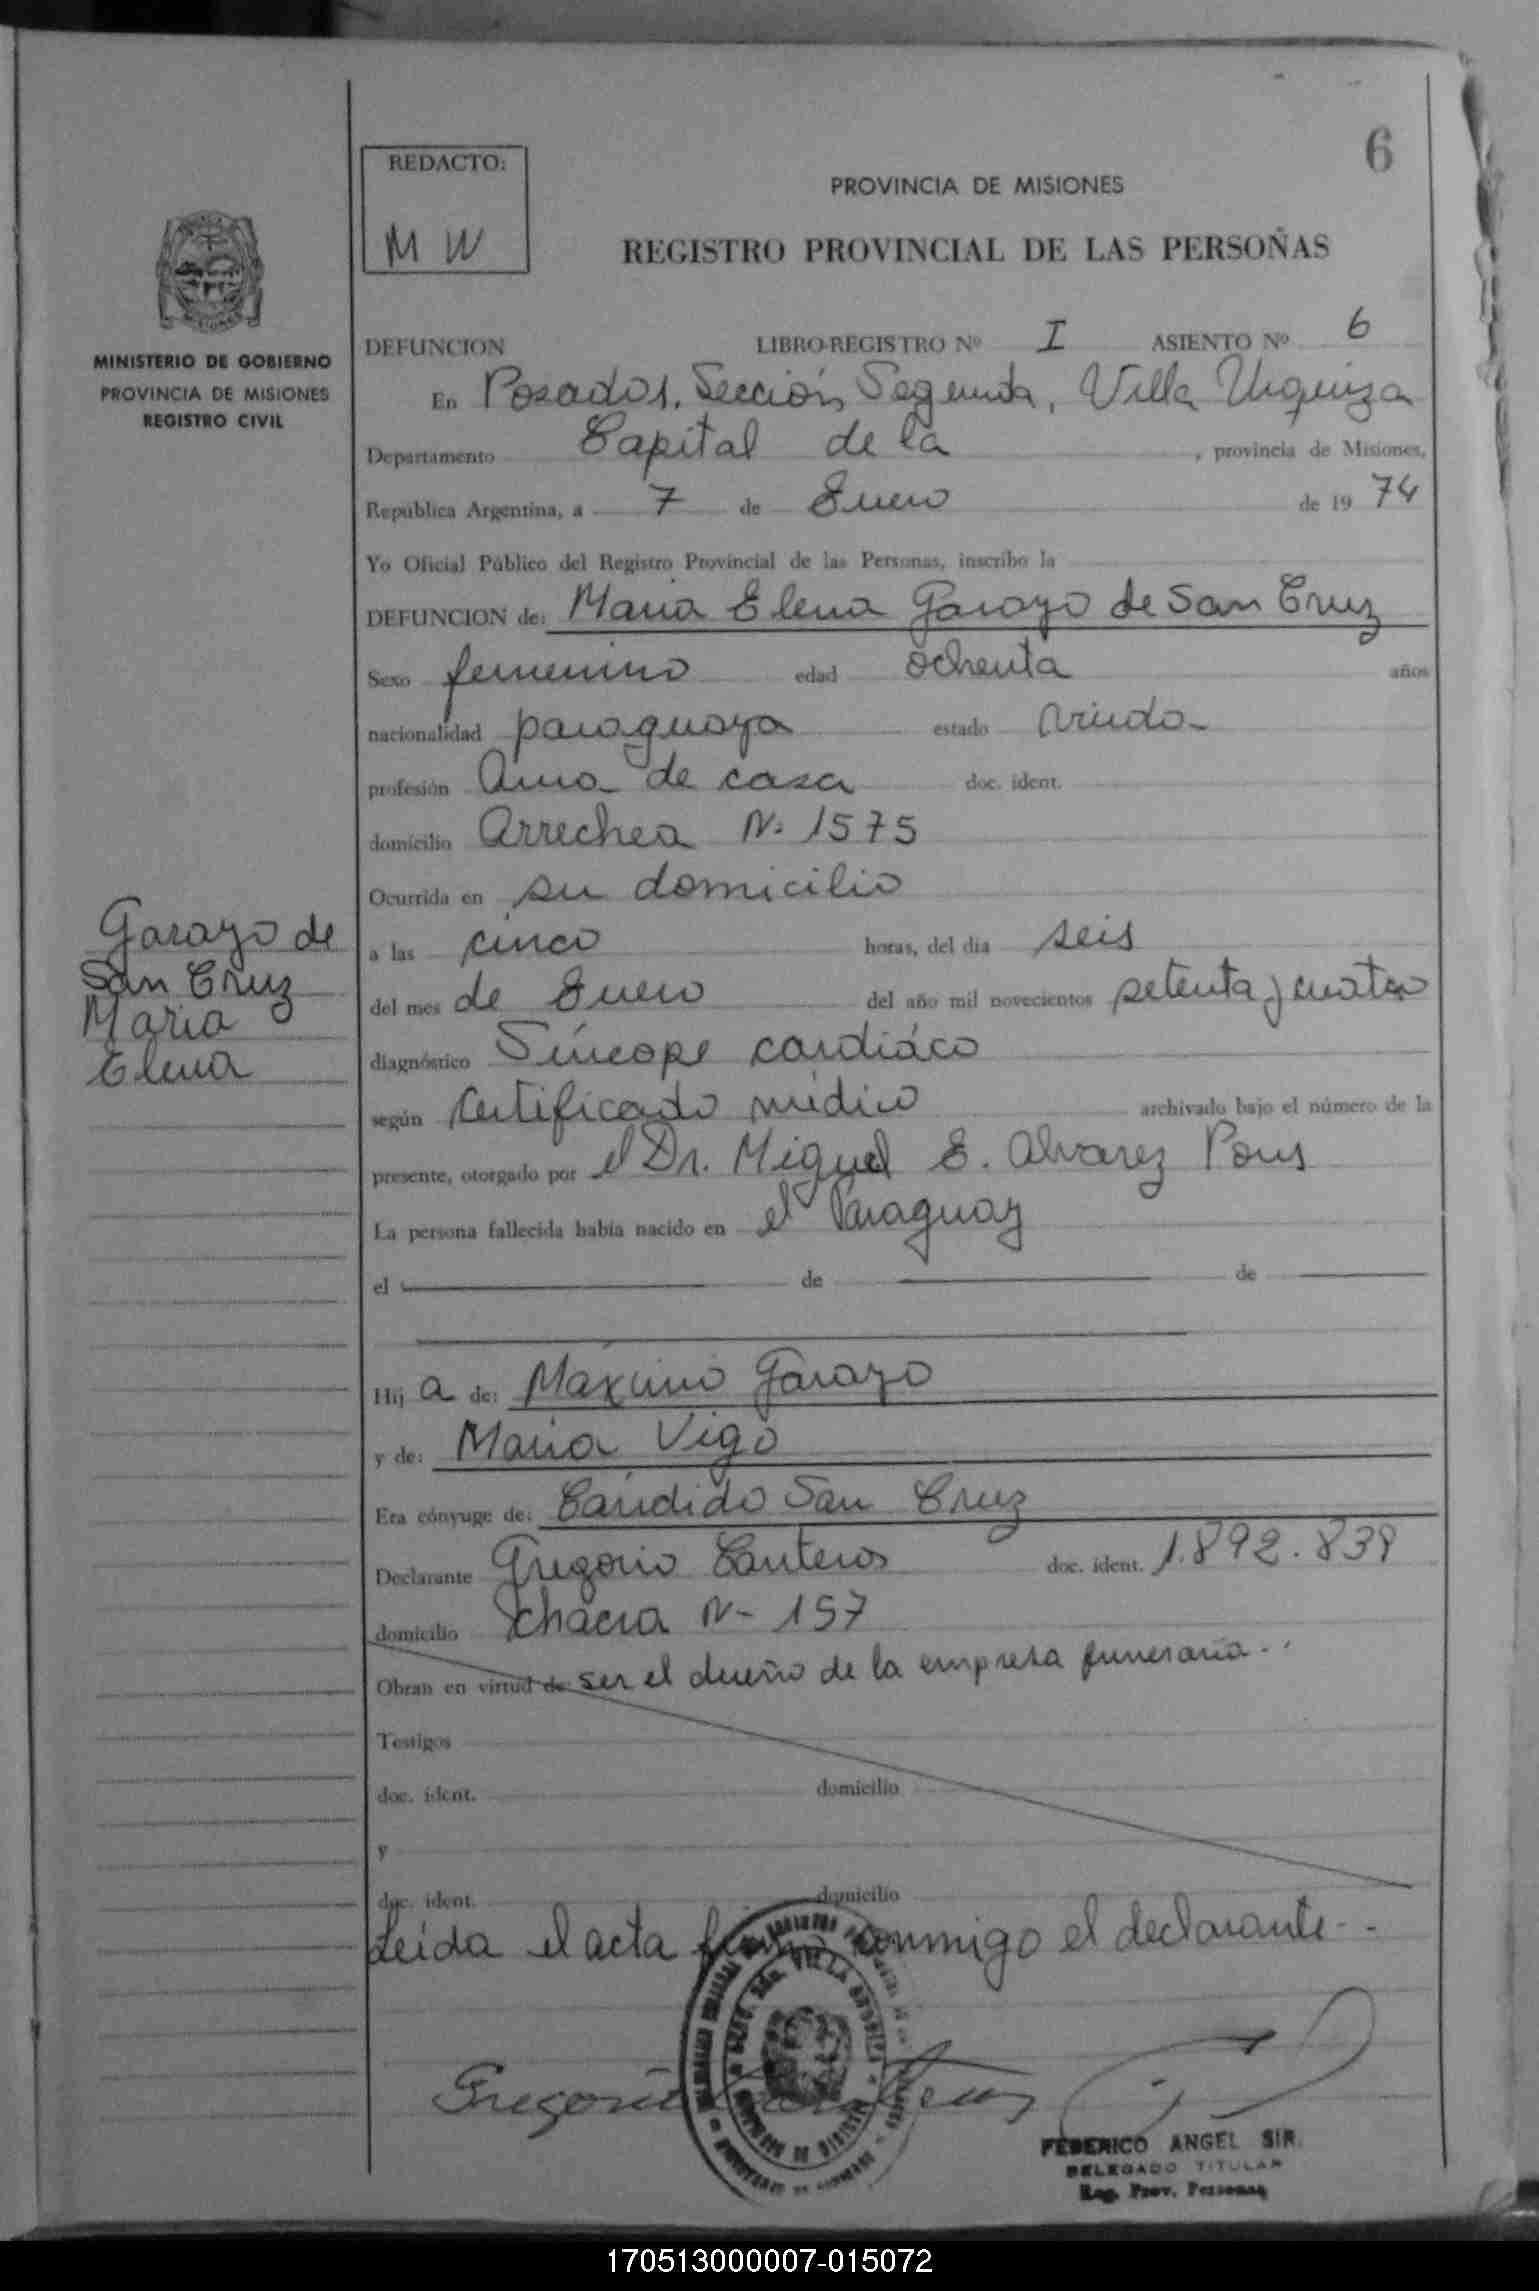 6
REDACTO:
M W
PROVINCIA DE MISIONES
REGISTRO PROVINCIAL DE LAS PERSOÑAS
MINISTERIO DE GOBIERNO
PROVINCIA DE MISIONES
REGISTRO CIVIL
DEFUNCION LIBRO-REGISTRO Nº I ASIENTO Nº 6
En Posadas, Sección Segunda, Villa Urquiza
Departamento Capital de la , provincia de Misiones,
República Argentina, a 7 de Enero de 1974
Yo Oficial Público del Registro Provincial de las Personas, inscribo la
DEFUNCION de: Maria Elena Garayo de San Cruz
Sexo femenino edad ochenta años
nacionalidad paraguaya estado viuda
profesión Ama de casa doc. ident.
domicilio Arrechea N: 1575
Ocurrida en su domicilio
a las cinco horas, del día seis
del mes de Enero del año mil novecientos setenta y cuatro
diagnóstico Síncope cardiáco
según Certificado médico archivado bajo el número de la
presente, otorgado por el Dr. Miguel E. Alvarez Pons
La persona fallecida había nacido en el Paraguay
el de de
Hij a de: Máximo Garayo
y de: Maria Vigo
Era cónyuge de: Cándido San Cruz
Declarante Gregorio Canteros doc. ident. 1.892.839
domicilio Chacra N- 157
Obran en virtud de ser el dueño de la empresa funeraria..
Testigos
doc. ident. domicilio
y
doc. ident. domicilio
Leída el acta firma conmigo el declarante--
Garayo de
San Cruz
Maria
Elena
Gregorio Canteros
FEDERICO ANGEL SIR.
DELEGADO TITULAR
Reg. Prov. Personas
170513000007-015072